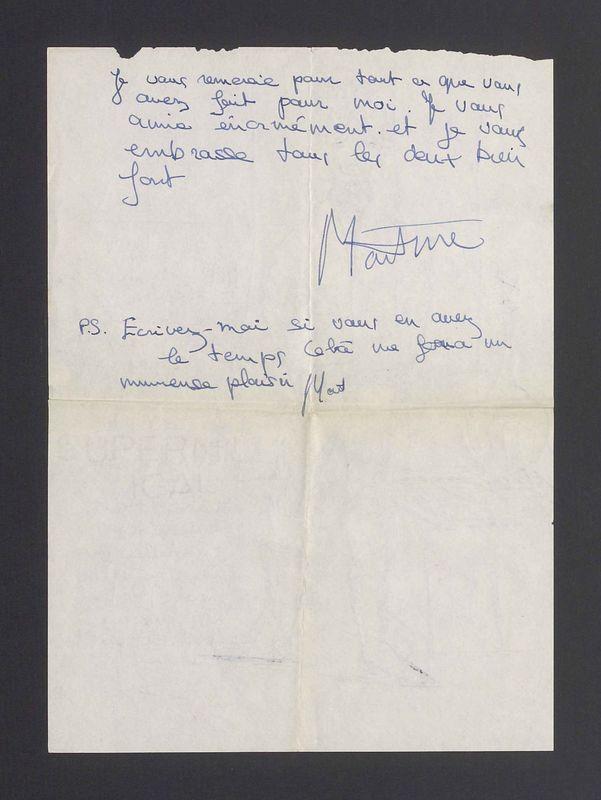 Je vous remercie pour tout ce que vous
avez fait pour moi. Je vous
aime énormément. et je vous
embrasse tous les deux bien
fort
Martine
P.S. Ecrivez-moi si vous en avez
le temps Cela me fera un
immense plaisir Mart